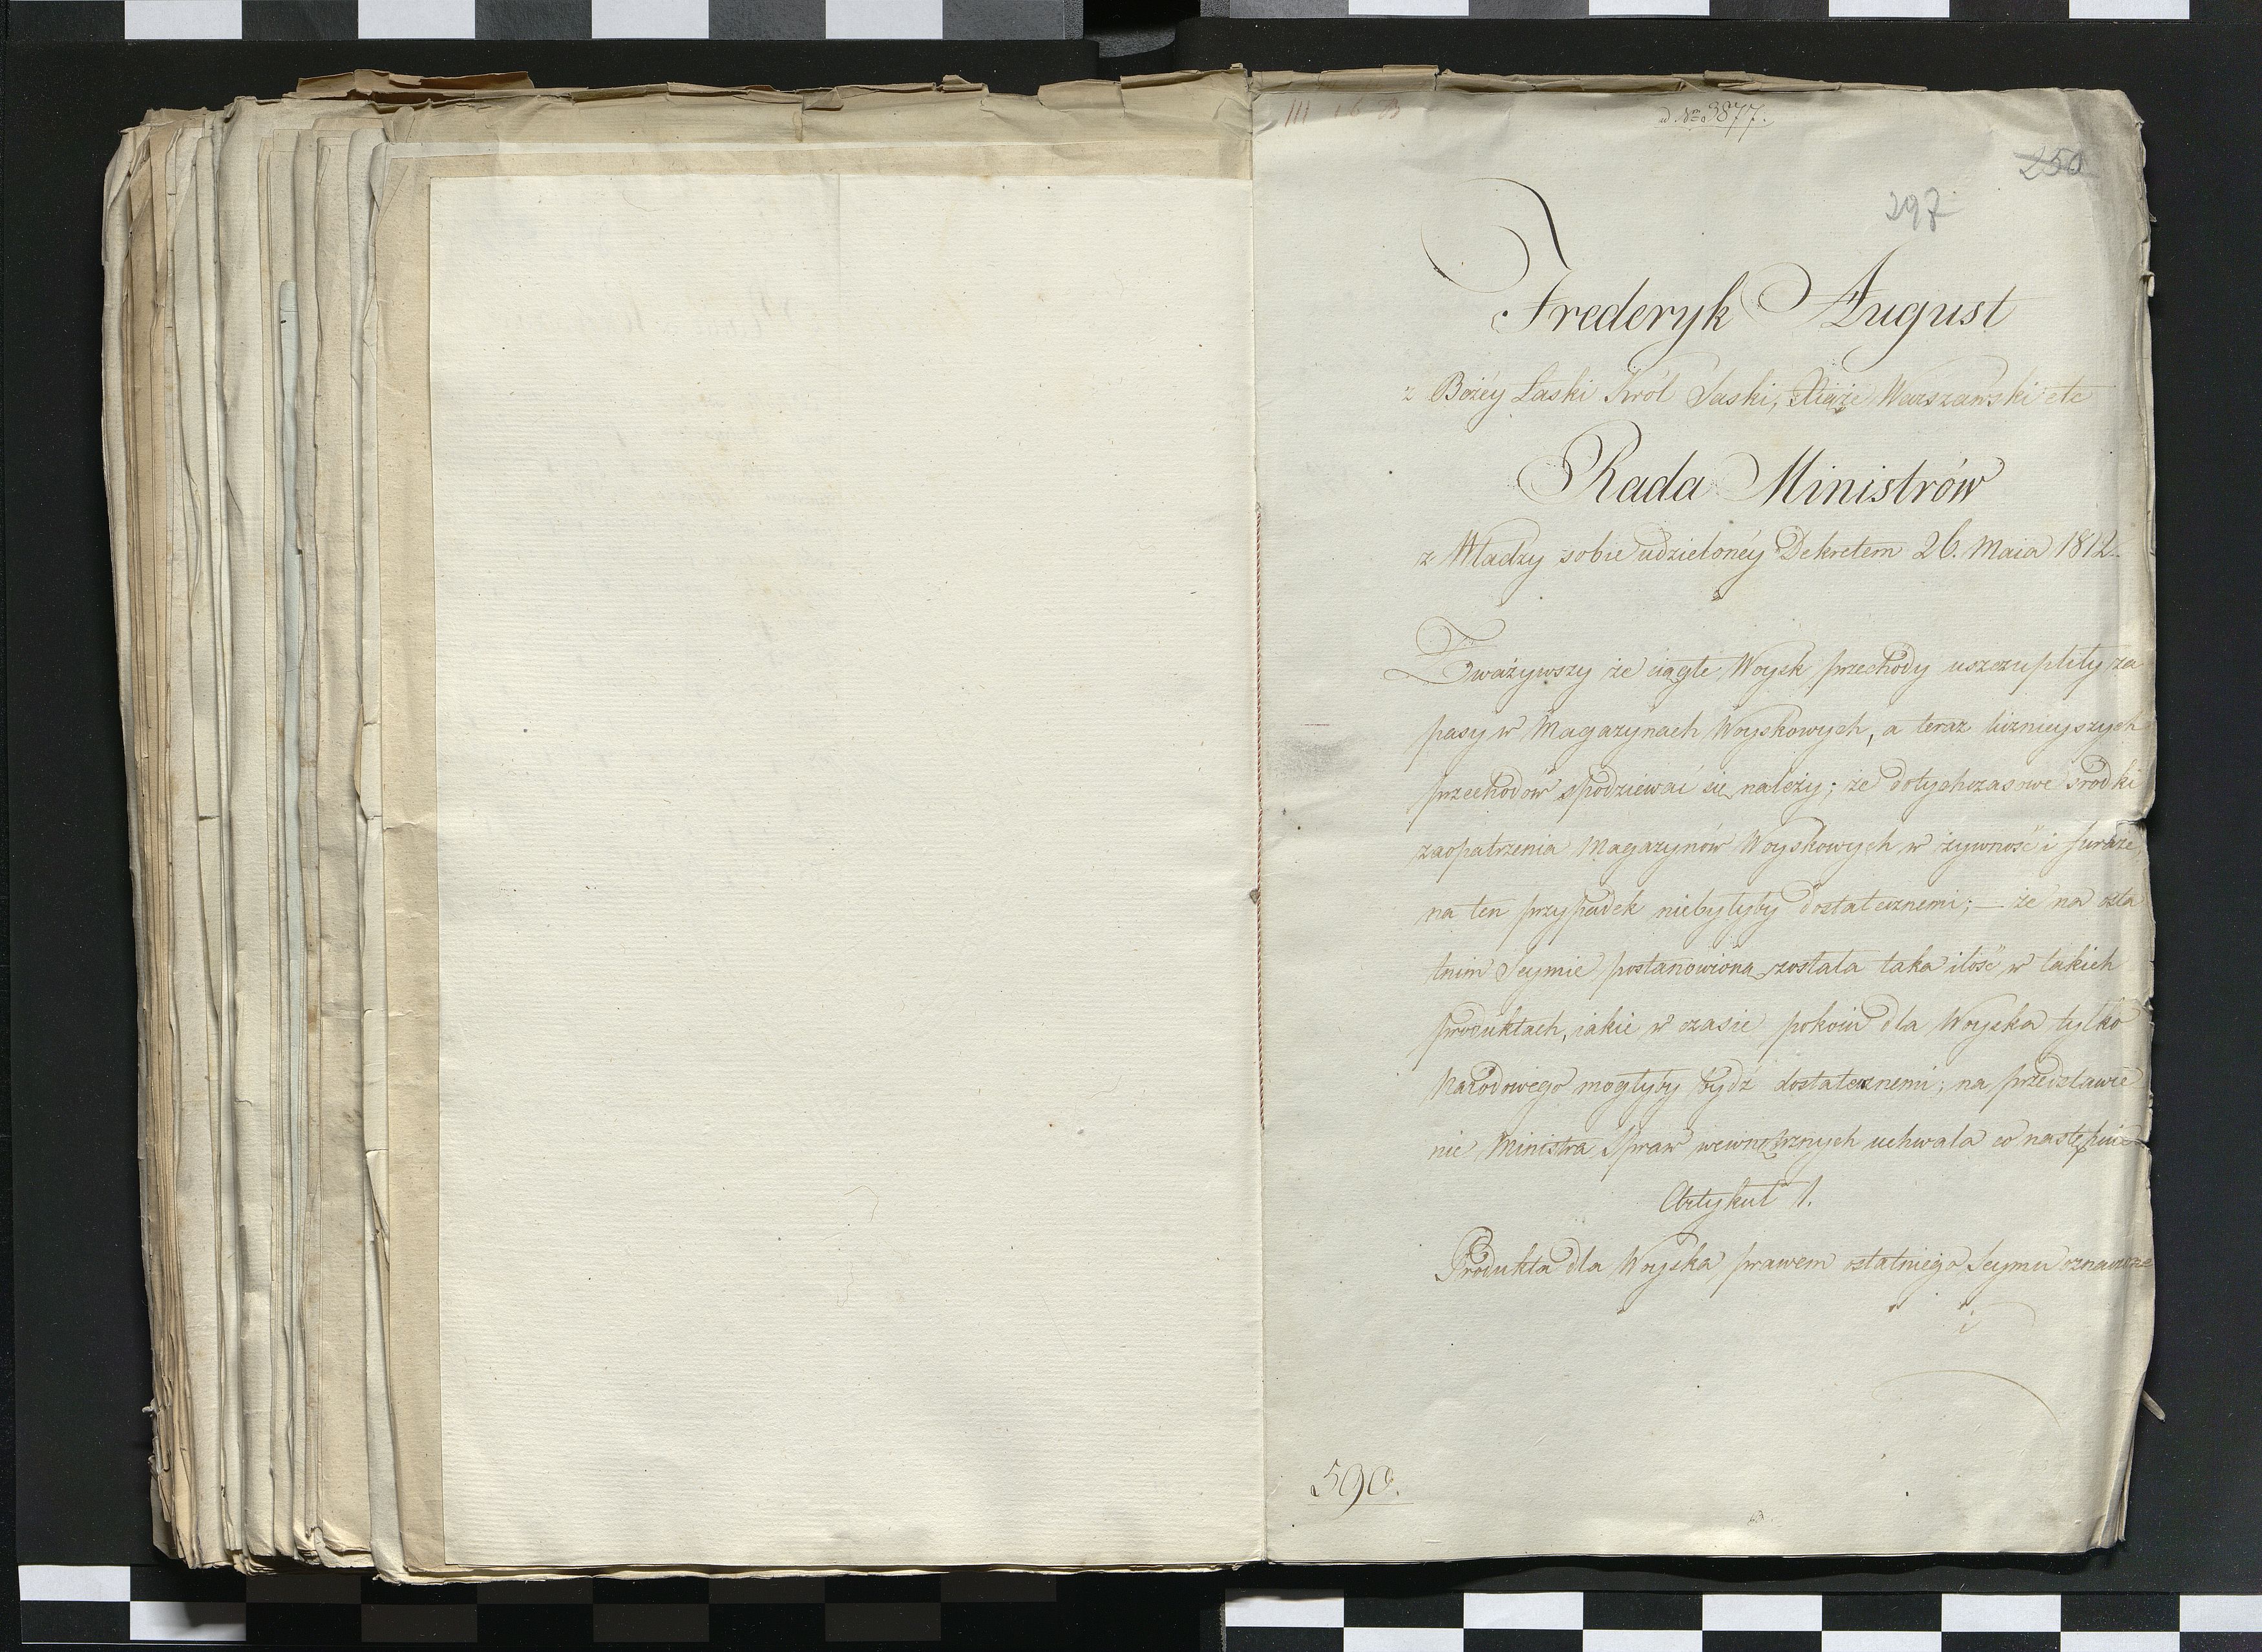 III 16 B
ad Nm 3877.
250
297
Frederyk August
z Bożey Łaski Król Saski, Xiąże Warszawski etc
Rada Ministrów
z Władzy sobie udzielonéy Dekretem 26. Maia 1812.
Zważywszy że ciągłe Woysk przechody uszczupliły za
pasy w Magazynach Woyskowych, a teraz licznieyszych
przechodów spodziewać się należy; że dotychczasowe srodki
zaopatrzenia Magazynów Woyskowych w żywność i furaże,
na ten przypadek niebyłyby dostatecznemi; — że na osta
tnim Seymie postanowiona została taka ilość w takich
produktach, iakie w czasie pokoiu dla Woyska tylko
Narodowego mogłyby bydź dostatecznemi; na przedstawie
nie Ministra Spraw wewnętrznych uchwala co następuie
Artykuł 1.
Produkta dla Woyska prawem ostatniego Seymu oznaczone
i
590.